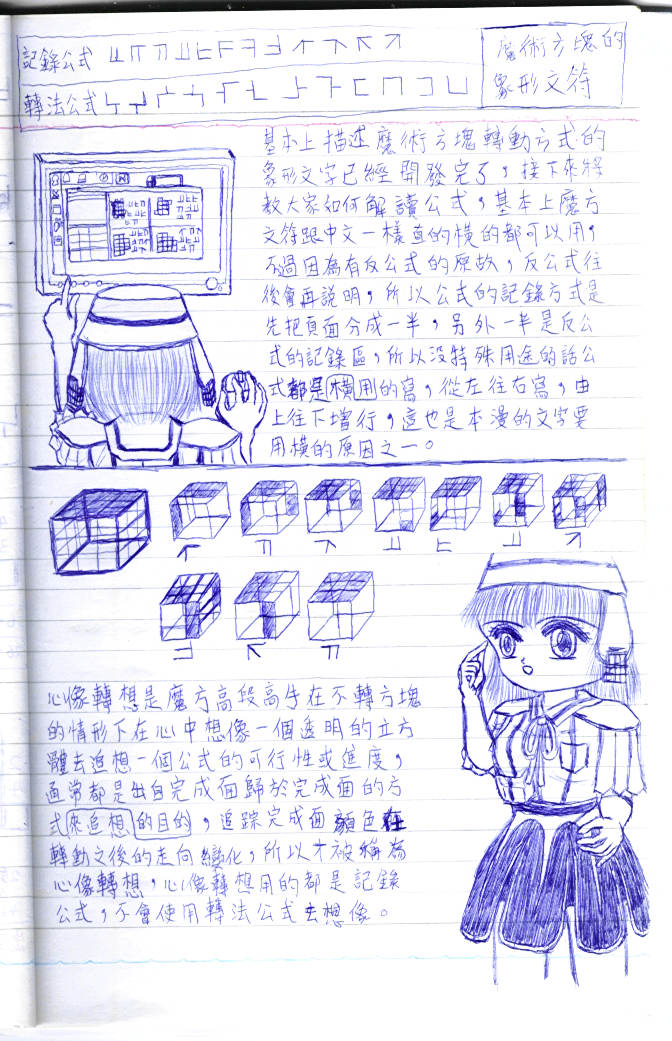 記錄公式
魔術方塊的
象形文符
轉法公式
基本上描述魔術方塊轉動方式的
象形文字已經開發完了，接下來將
教大家如何解讀公式，基本上魔方
文符跟中文一樣直的橫的都可以用，
不過因為有反公式的原故，反公式往
後會再說明，所以公式的記錄方式是
先把頁面分成一半，另外一半是反公
式的記錄區，所以沒特殊用途的話公
式都是橫用的寫，從左往右寫，由
上往下增行，這也是本漫的文字要
用橫的原因之一。
心像轉想是魔方高段高手在不轉方塊
的情形下在心中想像一個透明的立方
體去追想一個公式的可行性或進度，
通常都是出自完成面歸於完成面的方
式來追想的目的，追踪完成面顏色在
轉動之後的走向變化，所以才被稱為
心像轉想，心像轉想用的都是記錄
公式，不會使用轉法公式去想像。